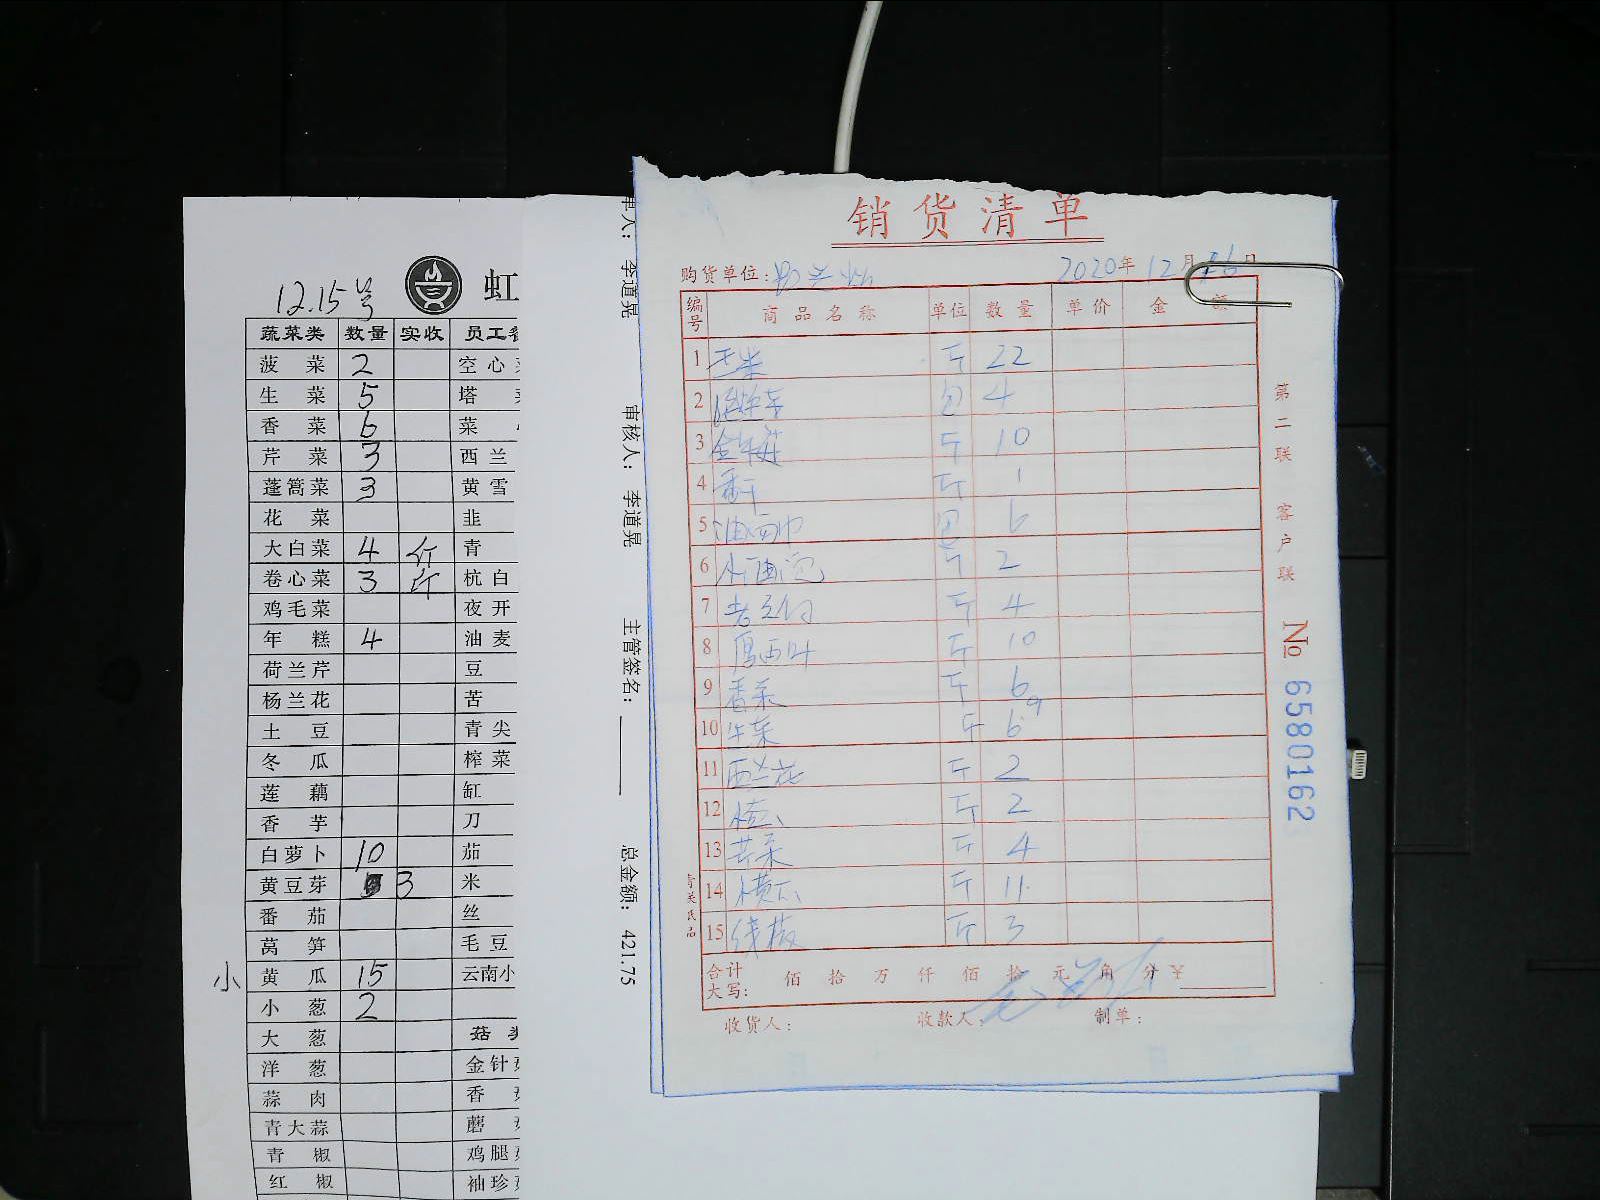 12.15号
虹
蔬菜类 数量 实收 员工
菠菜 2 空心
生菜 5 塔
香菜 6 菜
芹菜 3 西兰
蓬蒿菜 3 黄雪
花菜 韭
大白菜 4 斤 青
卷心菜 3 斤 杭白
鸡毛菜 夜开
年糕 4 油麦
荷兰芹 豆
杨兰花 苦
土豆 青尖
冬瓜 榨菜
莲藕 缸
香芋 刀
白萝卜 10 茄
黄豆芽 3 米
番茄 丝
莴笋 毛豆
小 黄瓜 15 云南小
小葱 2
大葱 菇
洋葱 金针
蒜肉 香
青大蒜 蘑
青椒 鸡腿
红椒 袖珍
单人: 李道晃
审核人: 李道晃
主管签名:
总金额: 421.75
销货清单
购货单位: 2020年12月16日
编号 商品名称 单位 数量 单价 金额
1 玉米 斤 22
2 包 4
3 金针菇 斤 10
4 香干 斤 1
5 油面巾 包 6
6 斤 2
7 斤 4
8 斤 10
9 香菜 斤 6
10 生菜 斤 6.9
11 西兰花 斤 2
12 斤 2
13 芹菜 斤 4
14 斤 11
15 线椒 斤 3
合计大写: 佰 拾 万 仟 佰 拾 元 角 分 ¥
收货人: 收款人: 制单:
第二联 客户联
No 6580162
青联纸品